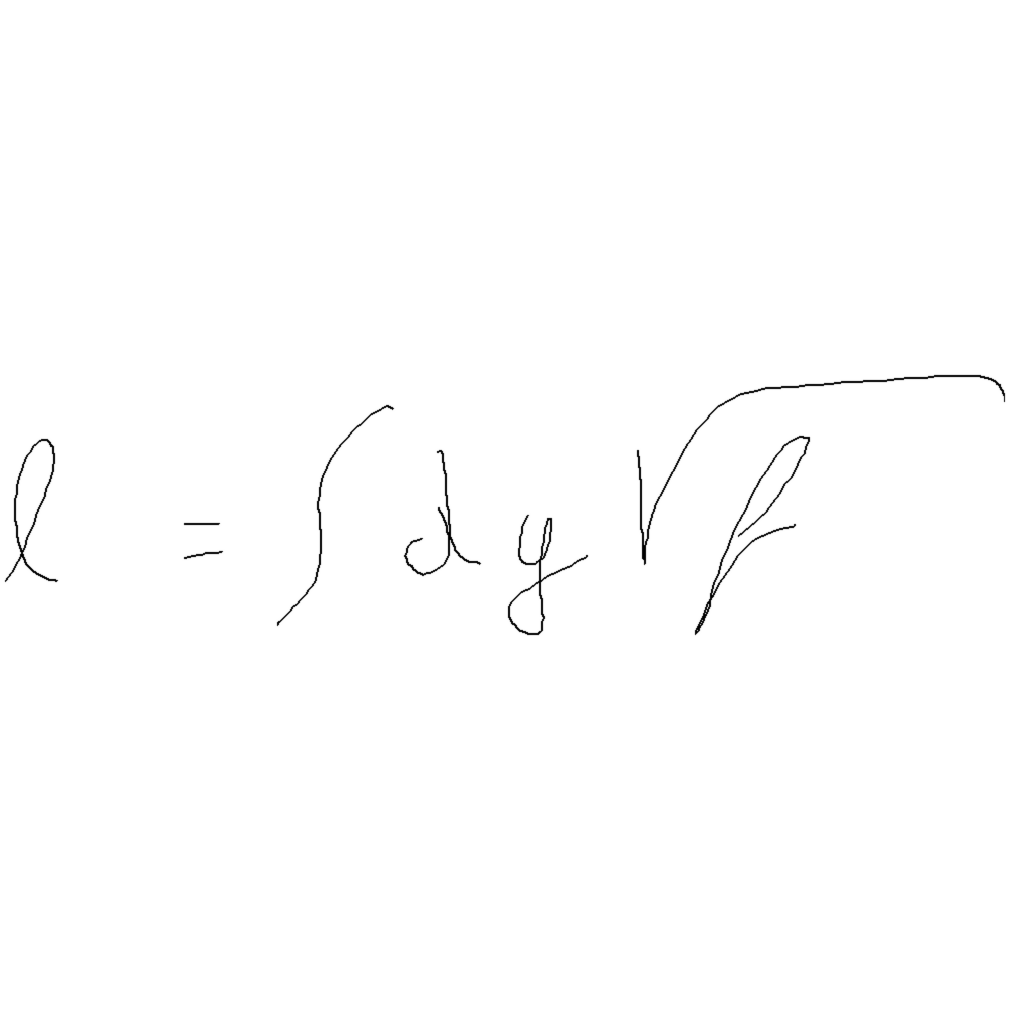 l = ∫ dy √f